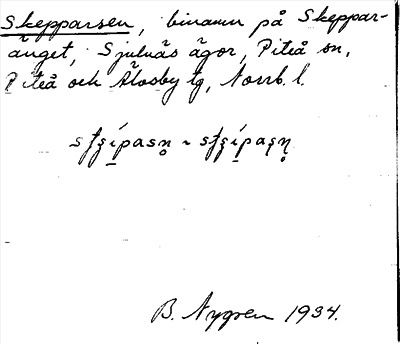 Skepparsen, binamn på Skeppar-
änget, Sjulnäs ägor, Piteå sn,
Piteå och Älvsby tg, Norrb. l.
B. Nygren 1934.